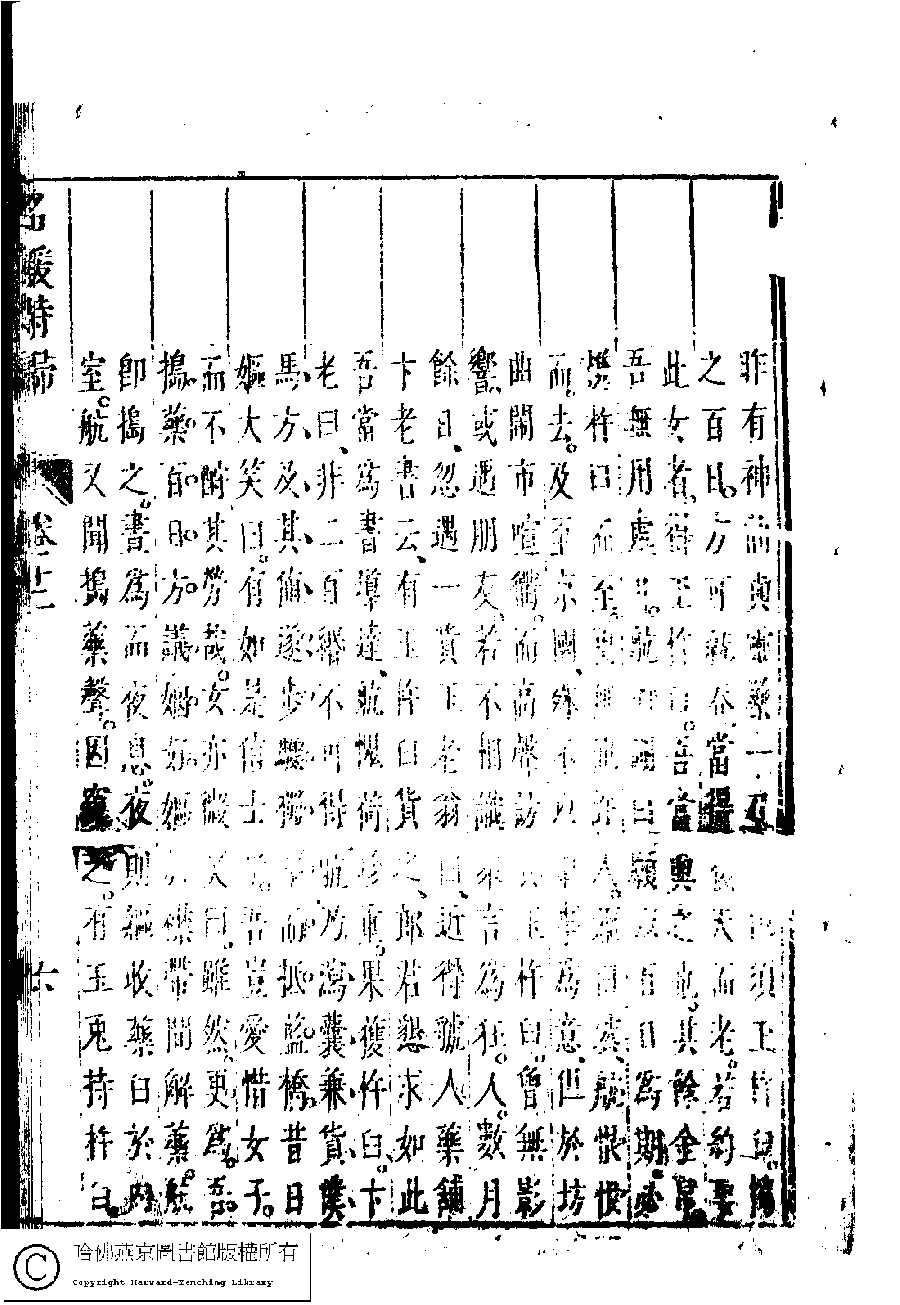 昨有神仙與靈藥一刀圭須玉杵臼搗
之百日方可就吞當得後天而老若約娶
此女者得玉杵臼吾當與之也其餘金帛
吾無用處航拜謝曰願以百日為期必
攜杵臼而至更無他許人嫗曰然航恨恨
而去及至京國殊不以舉事為意但於坊
曲鬧市喧衢而高聲訪其玉杵臼曾無影
響或遇朋友若不相識衆言為狂人數月
餘日忽遇一貨玉老翁曰近得虢人藥鋪
卞老書云有玉杵臼貨之郎君懇求如此
吾當為書導達航愧荷珍重果獲杵臼卞
老曰非二百緡不可得航乃瀉囊兼貨僕
馬方及其値遂步驟獨挈而抵藍橋昔日
嫗大笑曰有如是信士乎吾豈愛惜女子
而不酧其勞哉女亦微笑曰雖然更為吾
搗藥百日方議姻好嫗於襟帶間解藥航
即搗之晝為而夜息夜則嫗收藥臼於內
室航又聞搗藥聲因窺之有玉兎持杵臼
名媛詩歸 卷十二 六
哈佛燕京圖書館版權所有
Copyright Harvard-Yenching Library